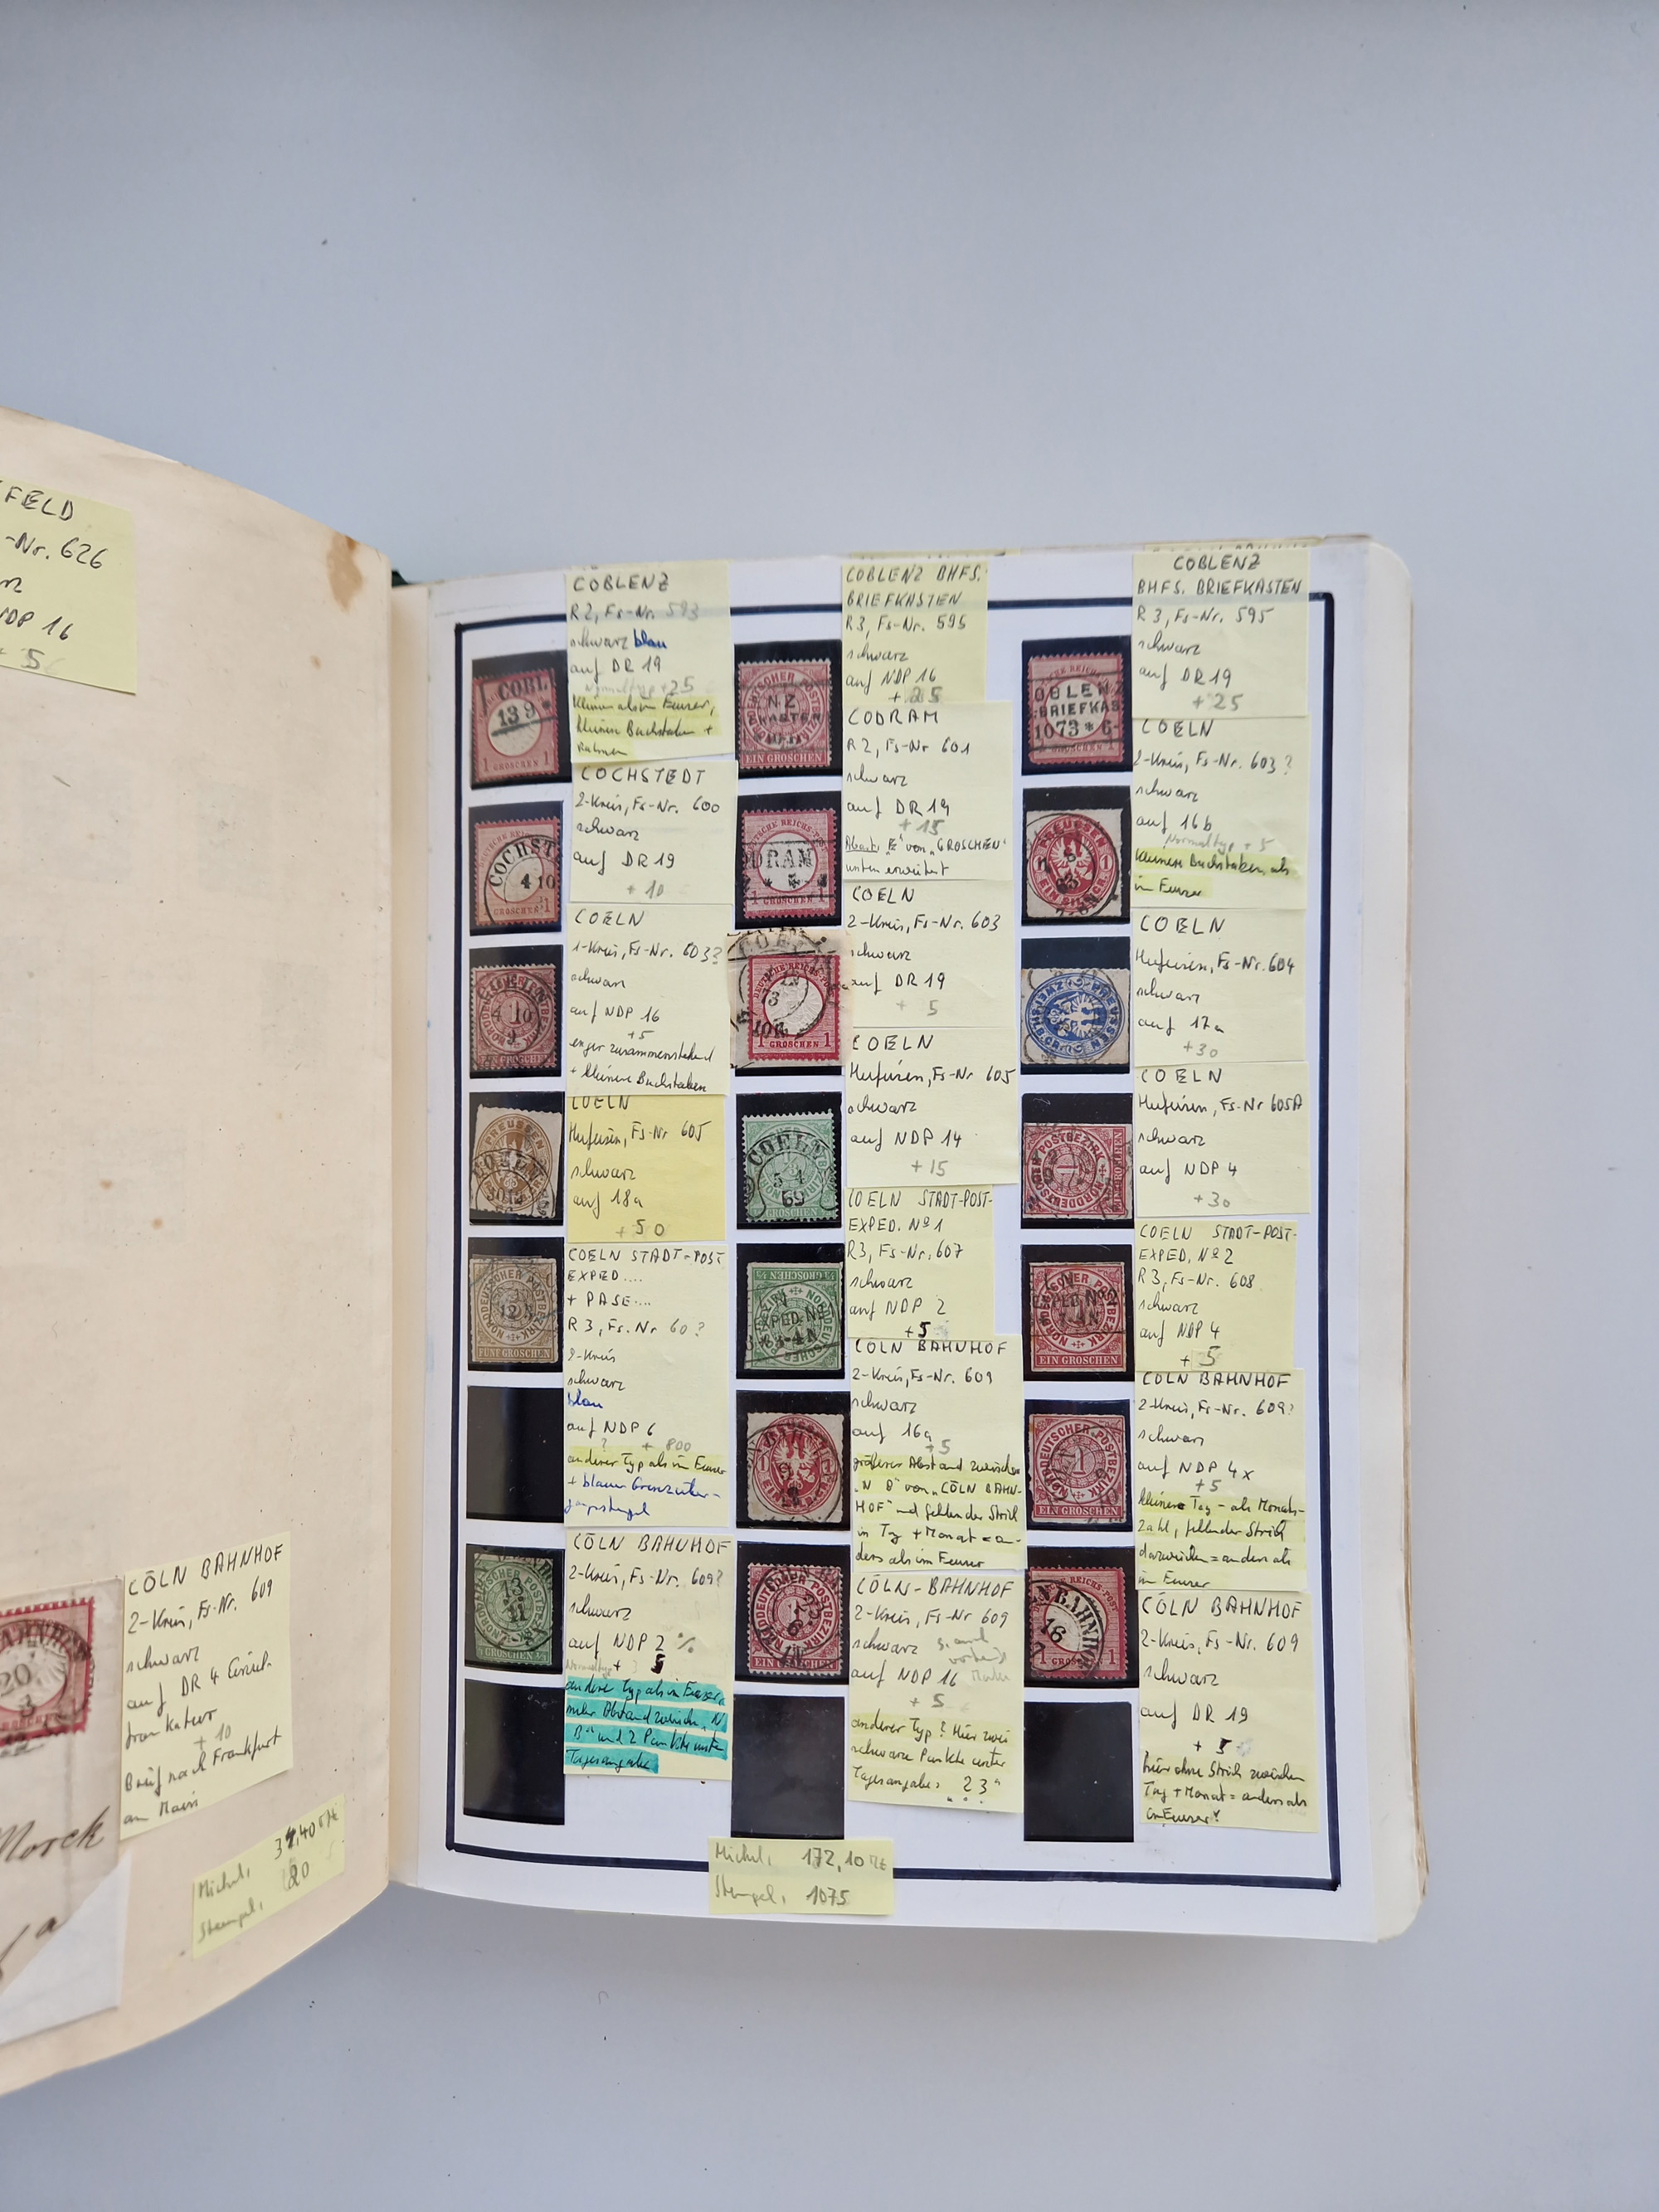 FELD
-Nr. 626
rz
NDP 16
5
CÖLN BAHNHOF
2-Kreis, Fs-Nr. 609
schwarz
auf DR 4
frankatur
+ 10
Brief nach Frankfurt
am Main
Morck
Michel, 37,40
Stempel, 20
COBLENZ
R2, Fs-Nr. 593
schwarz blau
auf DR 19
Normaltyp +25
kleiner als im Feuser,
kleinere Buchstaben +
Rahmen
COBLENZ BHFS.
BRIEFKASTEN
R3, Fs-Nr. 595
schwarz
auf NDP 16
+ 25
COBLENZ
BHFS. BRIEFKASTEN
R3, Fs-Nr. 595
schwarz
auf DR 19
+ 25
COBL
13 9
1 GROSCHEN 1
NZ
KASTEN
EIN GROSCHEN
OBLENZ
BRIEFKAS
10 73 * 6-
GROSCHEN
COCHSTEDT
2-Kreis, Fs-Nr. 600
schwarz
auf DR 19
+ 10
CODRAM
R2, Fs-Nr 601
schwarz
auf DR 19
+ 15
"E" von "GROSCHEN"
unten erweitert
COELN
2-Kreis, Fs-Nr. 603?
schwarz
auf 16b
Normaltyp + 5
kleinere Buchstaben als
im Feuser
COCHSTE
4 10
1 GROSCHEN 1
DRAM
1 GROSCHEN 1
PREUSSEN
COELN
1-Kreis, Fs-Nr. 603?
schwarz
auf NDP 16
+5
enger zusammenstehend
+ kleinere Buchstaben
COELN
2-Kreis, Fs-Nr. 603
schwarz
auf DR 19
+ 5
COELN
Hufeisen, Fs-Nr. 604
schwarz
auf 17a
+30
4 10
DEUTSCHE REICHS-POST
1 GROSCHEN 1
PREUSSEN
COELN
Hufeisen, Fs-Nr 605
schwarz
auf 18a
+ 50
COELN
Hufeisen, Fs-Nr 605
schwarz
auf NDP 14
+ 15
COELN
Hufeisen, Fs-Nr 605A
schwarz
auf NDP 4
+30
PREUSSEN
COELN
5 4
69
GROSCHEN
COELN STADT-POST
EXPED....
+ PASE....
R3, Fs.Nr 60?
2-Kreis
schwarz
blau
auf NDP 6
? + 800
anderer Typ als im Feuser
+ blauer
COELN STADT-POST-
EXPED. No 1
R3, Fs-Nr. 607
schwarz
auf NDP 2
+5
COELN STADT-POST-
EXPED. No 2
R3, Fs-Nr. 608
schwarz
auf NDP 4
+ 5
NORDDEUTSCHER POSTBEZIRK
FÜNF GROSCHEN
XPED. No
EIN GROSCHEN
CÖLN BAHNHOF
2-Kreis, Fs-Nr. 609
schwarz
auf 16a
+5
größerer Abstand zwischen
"N B" von "CÖLN BAHN-
HOF" und fehlender Strich
in Tag + Monat = an-
ders als im Feuser
CÖLN BAHNHOF
2-Kreis, Fs-Nr. 609?
schwarz
auf NDP 4x
+5
kleinere Tag- als Monats-
zahl, fehlender Strich
dazwischen = anders als
im Feuser
NORDDEUTSCHER POSTBEZIRK
EIN GROSCHEN
CÖLN BAHNHOF
2-Kreis, Fs-Nr. 609?
schwarz
auf NDP 2
Normaltyp + 5
anderer Typ als im Feuser,
mehr Abstand zwischen "N
B" und 2 Punkte unter
Tagesangabe
CÖLN-BAHNHOF
2-Kreis, Fs-Nr 609
schwarz
auf NDP 16
+ 5
anderer Typ? Hier zwei
schwarze Punkte unter
Tagesangabe: "23"
CÖLN BAHNHOF
2-Kreis, Fs-Nr. 609
schwarz
auf DR 19
+ 5
hier ohne Strich zwischen
Tag + Monat = anders als
im Feuser!
13
11
23
N BAHNH
16
1 GROSCHEN 1
Michel, 172,10
Stempel, 1075